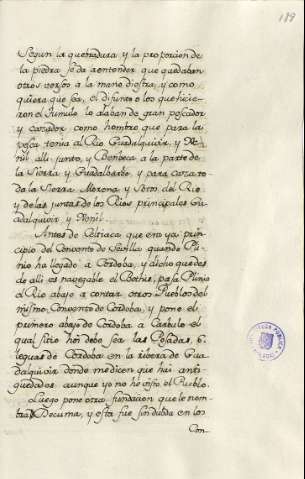 189
Segun la quebradura y la proporcion de
la piedra se da a entender que quedaban
otros versos a la mano diestra, y como
quiera que sea, el difunto o los que hicie-
ron el tumulo lo alaban de gran pescador
y cazador como hombre que para la
pesca tenia al Rio Guadalquivir, y Xe-
nil alli junto, y Bembeca a la parte de
la Sierra y Guadalbarbo, y para caza to-
da la Sierra Morena y Sotos del Rio
y de las juntas de los Rios principales Gua-
dalquivir y Xenil.
Antes de Celtiaca que era ya prin-
cipio del Convento de Sevilla quando Pli-
nio ha llegado a Cordoba, y dicho que des-
de alli es navegable el Bethis, pasa Plinio
el Rio abajo a contar otros Pueblos del
mismo Convento de Cordoba, y pone el
primero abajo de Cordoba a Carbulo el
qual sitio hoi debe ser las Posadas, 6
leguas de Cordoba en la ribera de Gua-
dalquivir donde me dicen que hai anti-
guedades aunque yo no he visto el Pueblo.
Luego pone otra fundacion que le nom-
bra Decuma, y esta fue sin duda en los
Con-